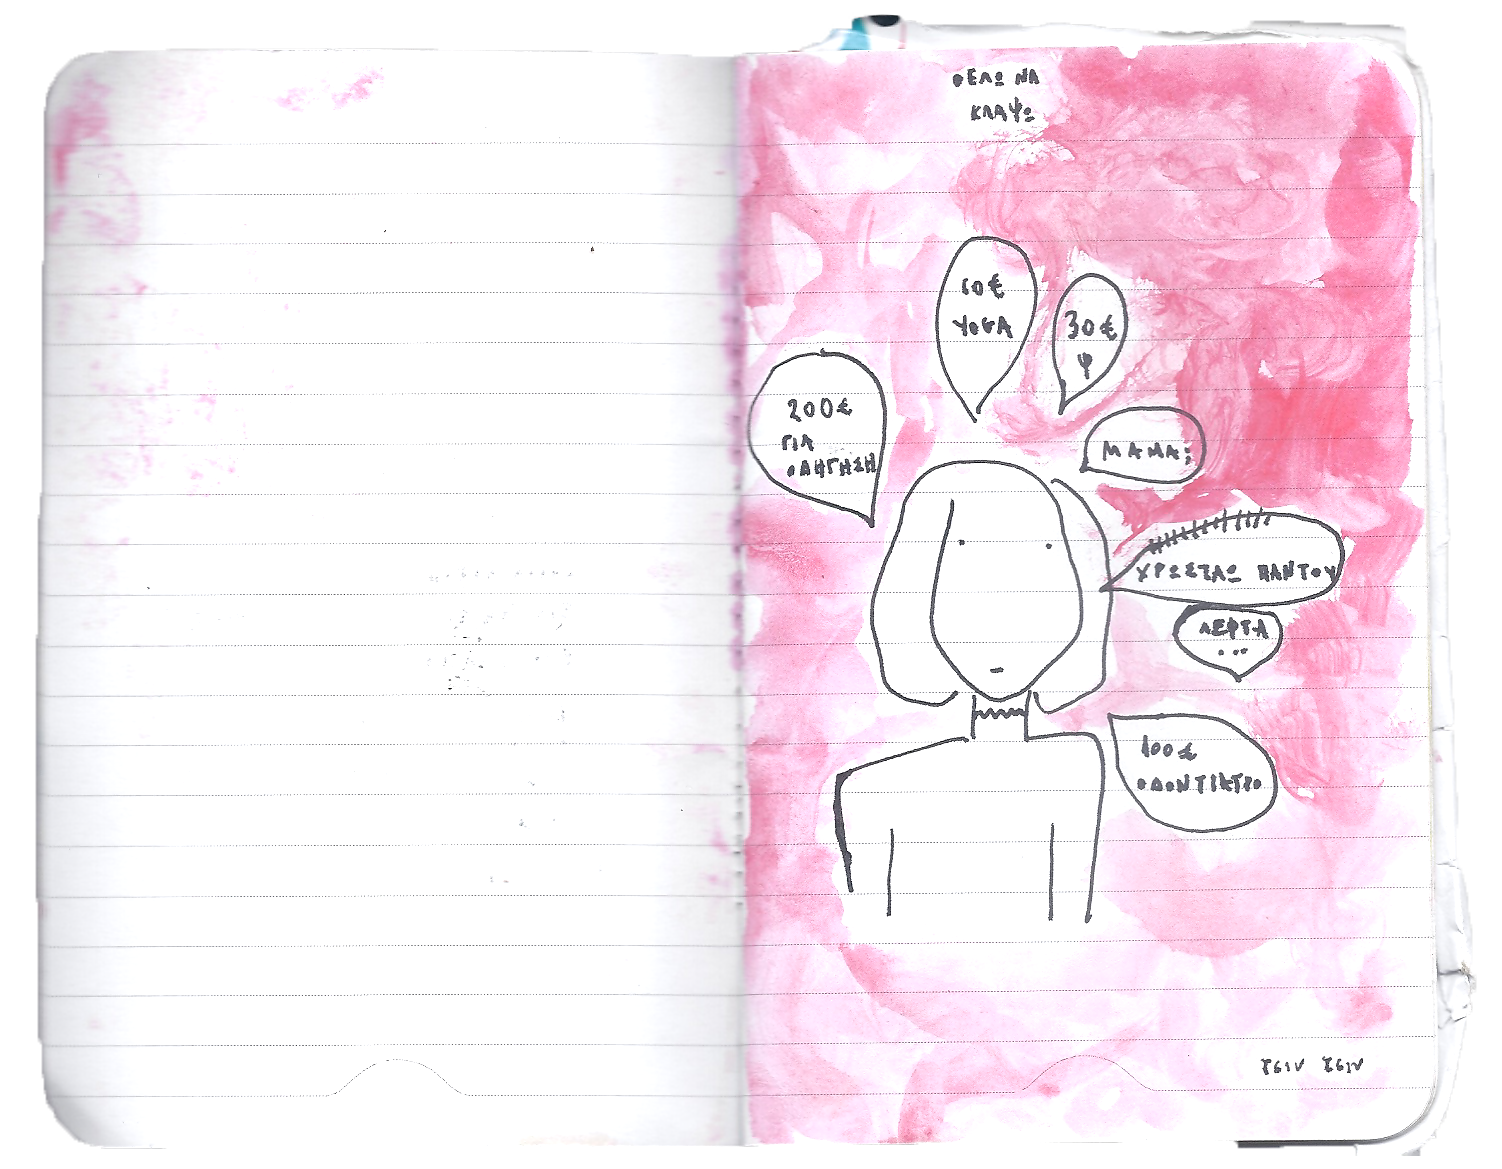 ΘΕΛΩ ΝΑ
ΚΛΑΨΩ
60€
YOGA
30€
Ψ
200€
ΓΙΑ
ΟΔΗΓΗΣΗ
ΜΑΜΑ;
ΧΡΩΣΤΑΩ ΠΑΝΤΟΥ
ΛΕΦΤΑ
...
100€
ΟΔΟΝΤΙΑΤΡΟ